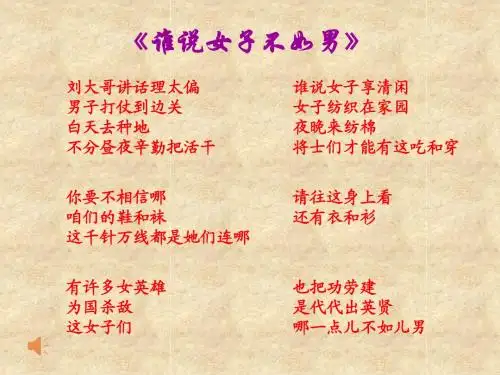 《谁说女子不如男》
刘大哥讲话理太偏 谁说女子享清闲
男子打仗到边关 女子纺织在家园
白天去种地 夜晚来纺棉
不分昼夜辛勤把活干 将士们才能有这吃和穿
你要不相信哪 请往这身上看
咱们的鞋和袜 还有衣和衫
这千针万线都是她们连哪
有许多女英雄 也把功劳建
为国杀敌 是代代出英贤
这女子们 哪一点儿不如儿男